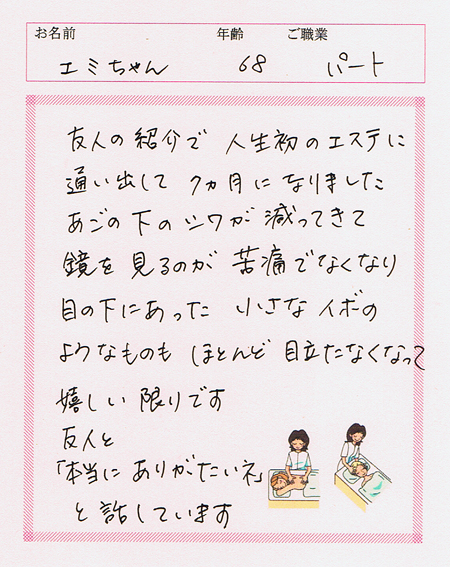 お名前 年齢 ご職業
エミちゃん 68 パート
友人の紹介で 人生初のエステに
通い出して 7ヵ月になりました
あごの下のシワが 減ってきて
鏡を見るのが 苦痛でなくなり
目の下にあった 小さなイボの
ようなものも ほとんど 目立たなくなって
嬉しい限りです
友人と
「本当に ありがたいネ」
と話しています